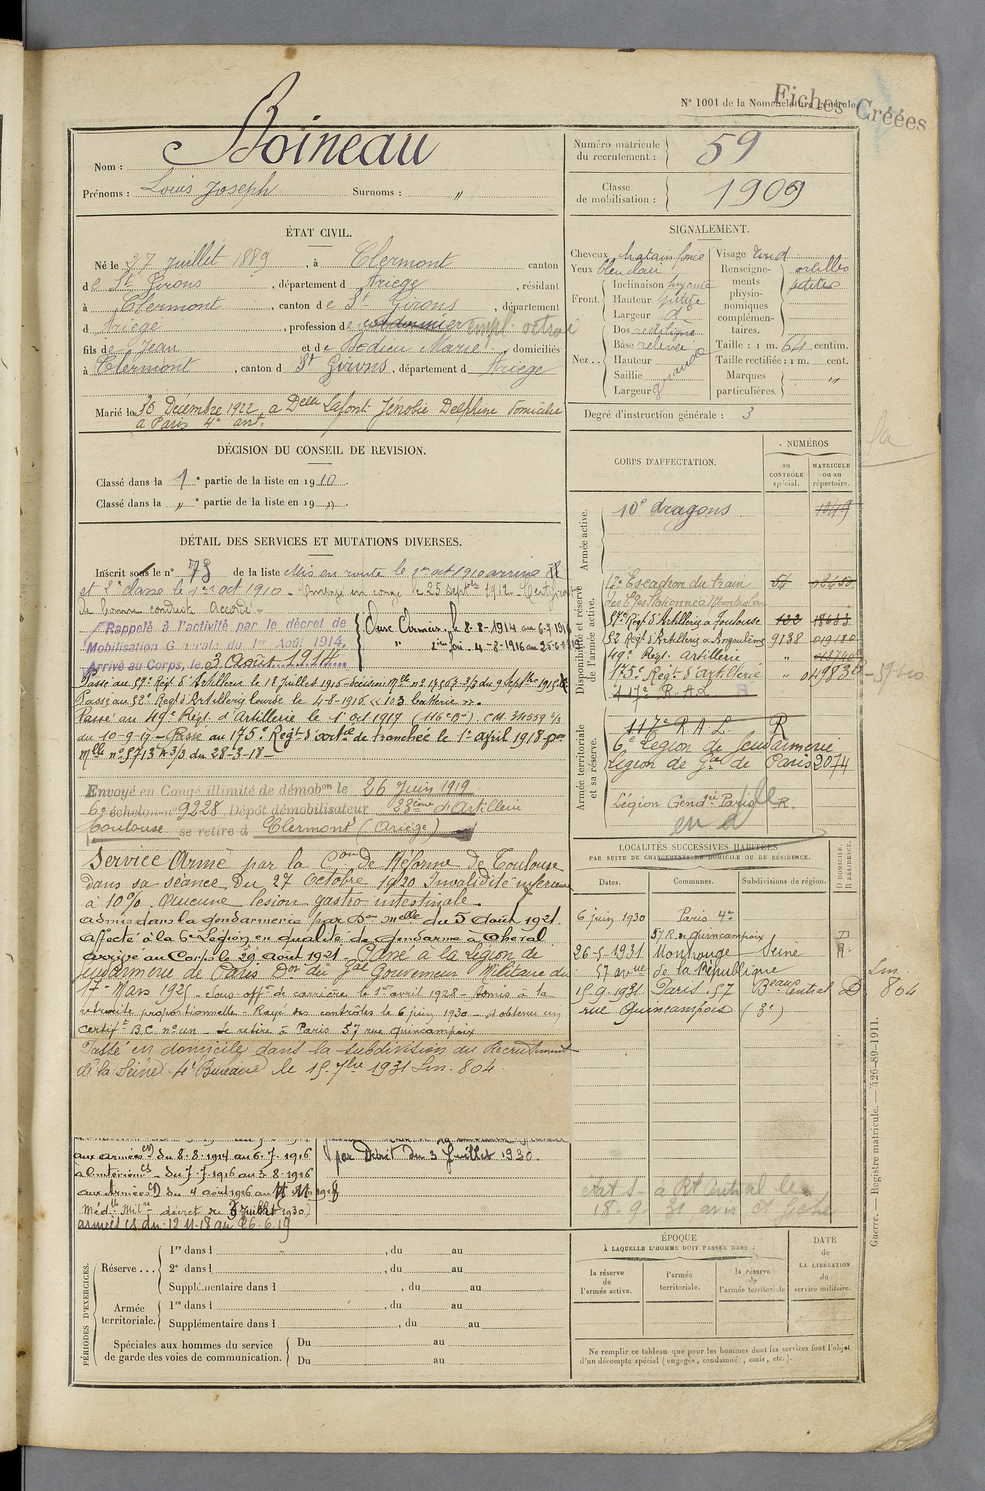 N° 1001 de la Nomenclature générale.
Fiches Créées
Nom : Boineau
Prénoms : Louis Joseph Surnoms : "
Numéro matricule du recrutement : 59
Classe de mobilisation : 1909
ÉTAT CIVIL.
Né le 27 juillet 1889, à Clermont canton
de St Girons, département d Ariege, résidant
à Clermont, canton de St Girons, département
d Ariege, profession de cordonnier empl. octroi
fils de Jean et de Dedieu Marie domiciliés
à Clermont, canton d St Girons, département d Ariege
Marié le 30 Décembre 1922, a Delle Lafont Jénobie Delphine domiciliée
a Paris 4e arrt.
SIGNALEMENT.
Cheveux chatain foncé Visage rond
Yeux bleu clair
Front. Inclinaison fuyante
Hauteur petite
Largeur do
Nez. Dos rectiligne
Base relevée
Hauteur
Saillie
Largeur grande
Renseignements physionomiques complémentaires. oreilles petites
Taille : 1 m. 64 centim.
Taille rectifiée : 1 m. cent.
Marques particulières. "
Degré d'instruction générale : 3
DÉCISION DU CONSEIL DE REVISION.
Classé dans la 1e partie de la liste en 1910.
Classé dans la " e partie de la liste en 19 ".
DÉTAIL DES SERVICES ET MUTATIONS DIVERSES.
Inscrit sous le n° 73 de la liste Mis en route le 1er oct 1910 arrivé
et 2e classe le 1er oct 1910 - Envoyé en congé le 25 septbre 1912 - Certificat
de bonne conduite Accordé -
Rappelé à l'activité par le décret de
Mobilisation Générale du 1er Août 1914.
Arrivé au Corps, le 3 Août 1914
Aux Armées, le 8-8-1914 au 6-7-1916
Passé au 57e Régt d'Artillerie le 18 Juillet 1915
Passé au 52e Régt d'Artillerie lourde le 4-8-1916 << 103 batterie >>
Passé au 49e Régt d'Artillerie le 1 oct 1917 (116e Bie)
du 10-9-17 - Passé au 175e Régt d'artie de tranchée le 1er April 1918 pon
Mlle no 5713 3/3 du 28-3-18 -
Envoyé en Congé illimité de démobon le 26 Juin 1919
6e échelon no 9228 Dépôt démobilisateur 23eme d'Artillerie
Toulouse se retire à Clermont (Ariège)
Service Armé par la Con de Réforme de Toulouse
dans sa séance Du 27 octobre 1920 Invalidité inférieure
à 10% Aucune lésion gastro intestinale.
Admis dans la gendarmerie par Don melle du 5 Aout 1921.
Affecté à la 6e Légion en qualité de gendarme à Cheval
Arrivé au Corps le 29 Aout 1921 - Passé à la Légion de
Gendarmerie de Paris Don du Gal Gouverneur Militaire du
17 Mars 1925 - Sous offr de carrière le 1er avril 1928 - Admis à la
retraite proportionnelle - Rayé des controles le 6 juin 1930 - A obtenu un
certift B.C. no un - Se retire à Paris 57 rue Quincampoix
Passé en domicile dans la subdivision du Recrutement
de la Seine 4e Bureau le 15 7bre 1931 Lm. 804
aux armées du 8-8-1914 au 6-7-1916
à l'intérieur du 7-7-1916 au 3-8-1916
aux Armées du 4 août 1916 au 11 11 1918
Médlle Mil. re décret du 3 Juillet 1930
armées cs du 12 11 18 au 26-6-19
par Décret du 3 Juillet 1930.
CORPS D'AFFECTATION.
NUMÉROS
au CONTRÔLE spécial.
MATRICULE ou au répertoire.
Armée active.
10e dragons 1049
Disponibilité et réserve de l'armée active.
17e Escadron du train
57e Régt d'Artillerie à Toulouse
52 Régt d'Artillerie à Angoulême 9138 019180
49e Régt Artillerie "
175e Régt d'artillerie " 04983
117e R.A.L.
Armée territoriale et sa réserve.
117e R.A.L. R
6e Légion de Gendarmerie
Légion de Gie de Paris 2074
Légion Gendrie Paris R.
LOCALITÉS SUCCESSIVES HABITÉES
PAR SUITE DE CHANGEMENTS DE DOMICILE OU DE RÉSIDENCE.
Dates. Communes. Subdivisions de région. D DOMICILE. R RÉSIDENCE.
6 juin 1930 Paris 4e
57 R. de Quincampoix D
26-5-1931 Montrouge Seine R.
57 avnue de la République
15-9-1931 Paris 57 Beau Central D
rue Quincampoix (3e)
Lm. 804
état S - à Rt Central le
18-9-31, avis et Gche
PÉRIODES D'EXERCICES.
Réserve ... 1re dans l , du au
2e dans l , du au
Supplémentaire dans l , du au
Armée territoriale. 1re dans l , du au
Supplémentaire dans l , du au
Spéciales aux hommes du service de garde des voies de communication. Du au
Du au
ÉPOQUE
À LAQUELLE L'HOMME DOIT PASSER DANS :
la réserve de l'armée active.
l'armée territoriale.
la réserve de l'armée territoriale
DATE de LA LIBÉRATION du service militaire.
Ne remplir ce tableau que pour les hommes dont les services font l'objet
d'un décompte spécial (engagés, condamnés, omis, etc.).
Guerre. — Registre matricule. — 426-89-1911.